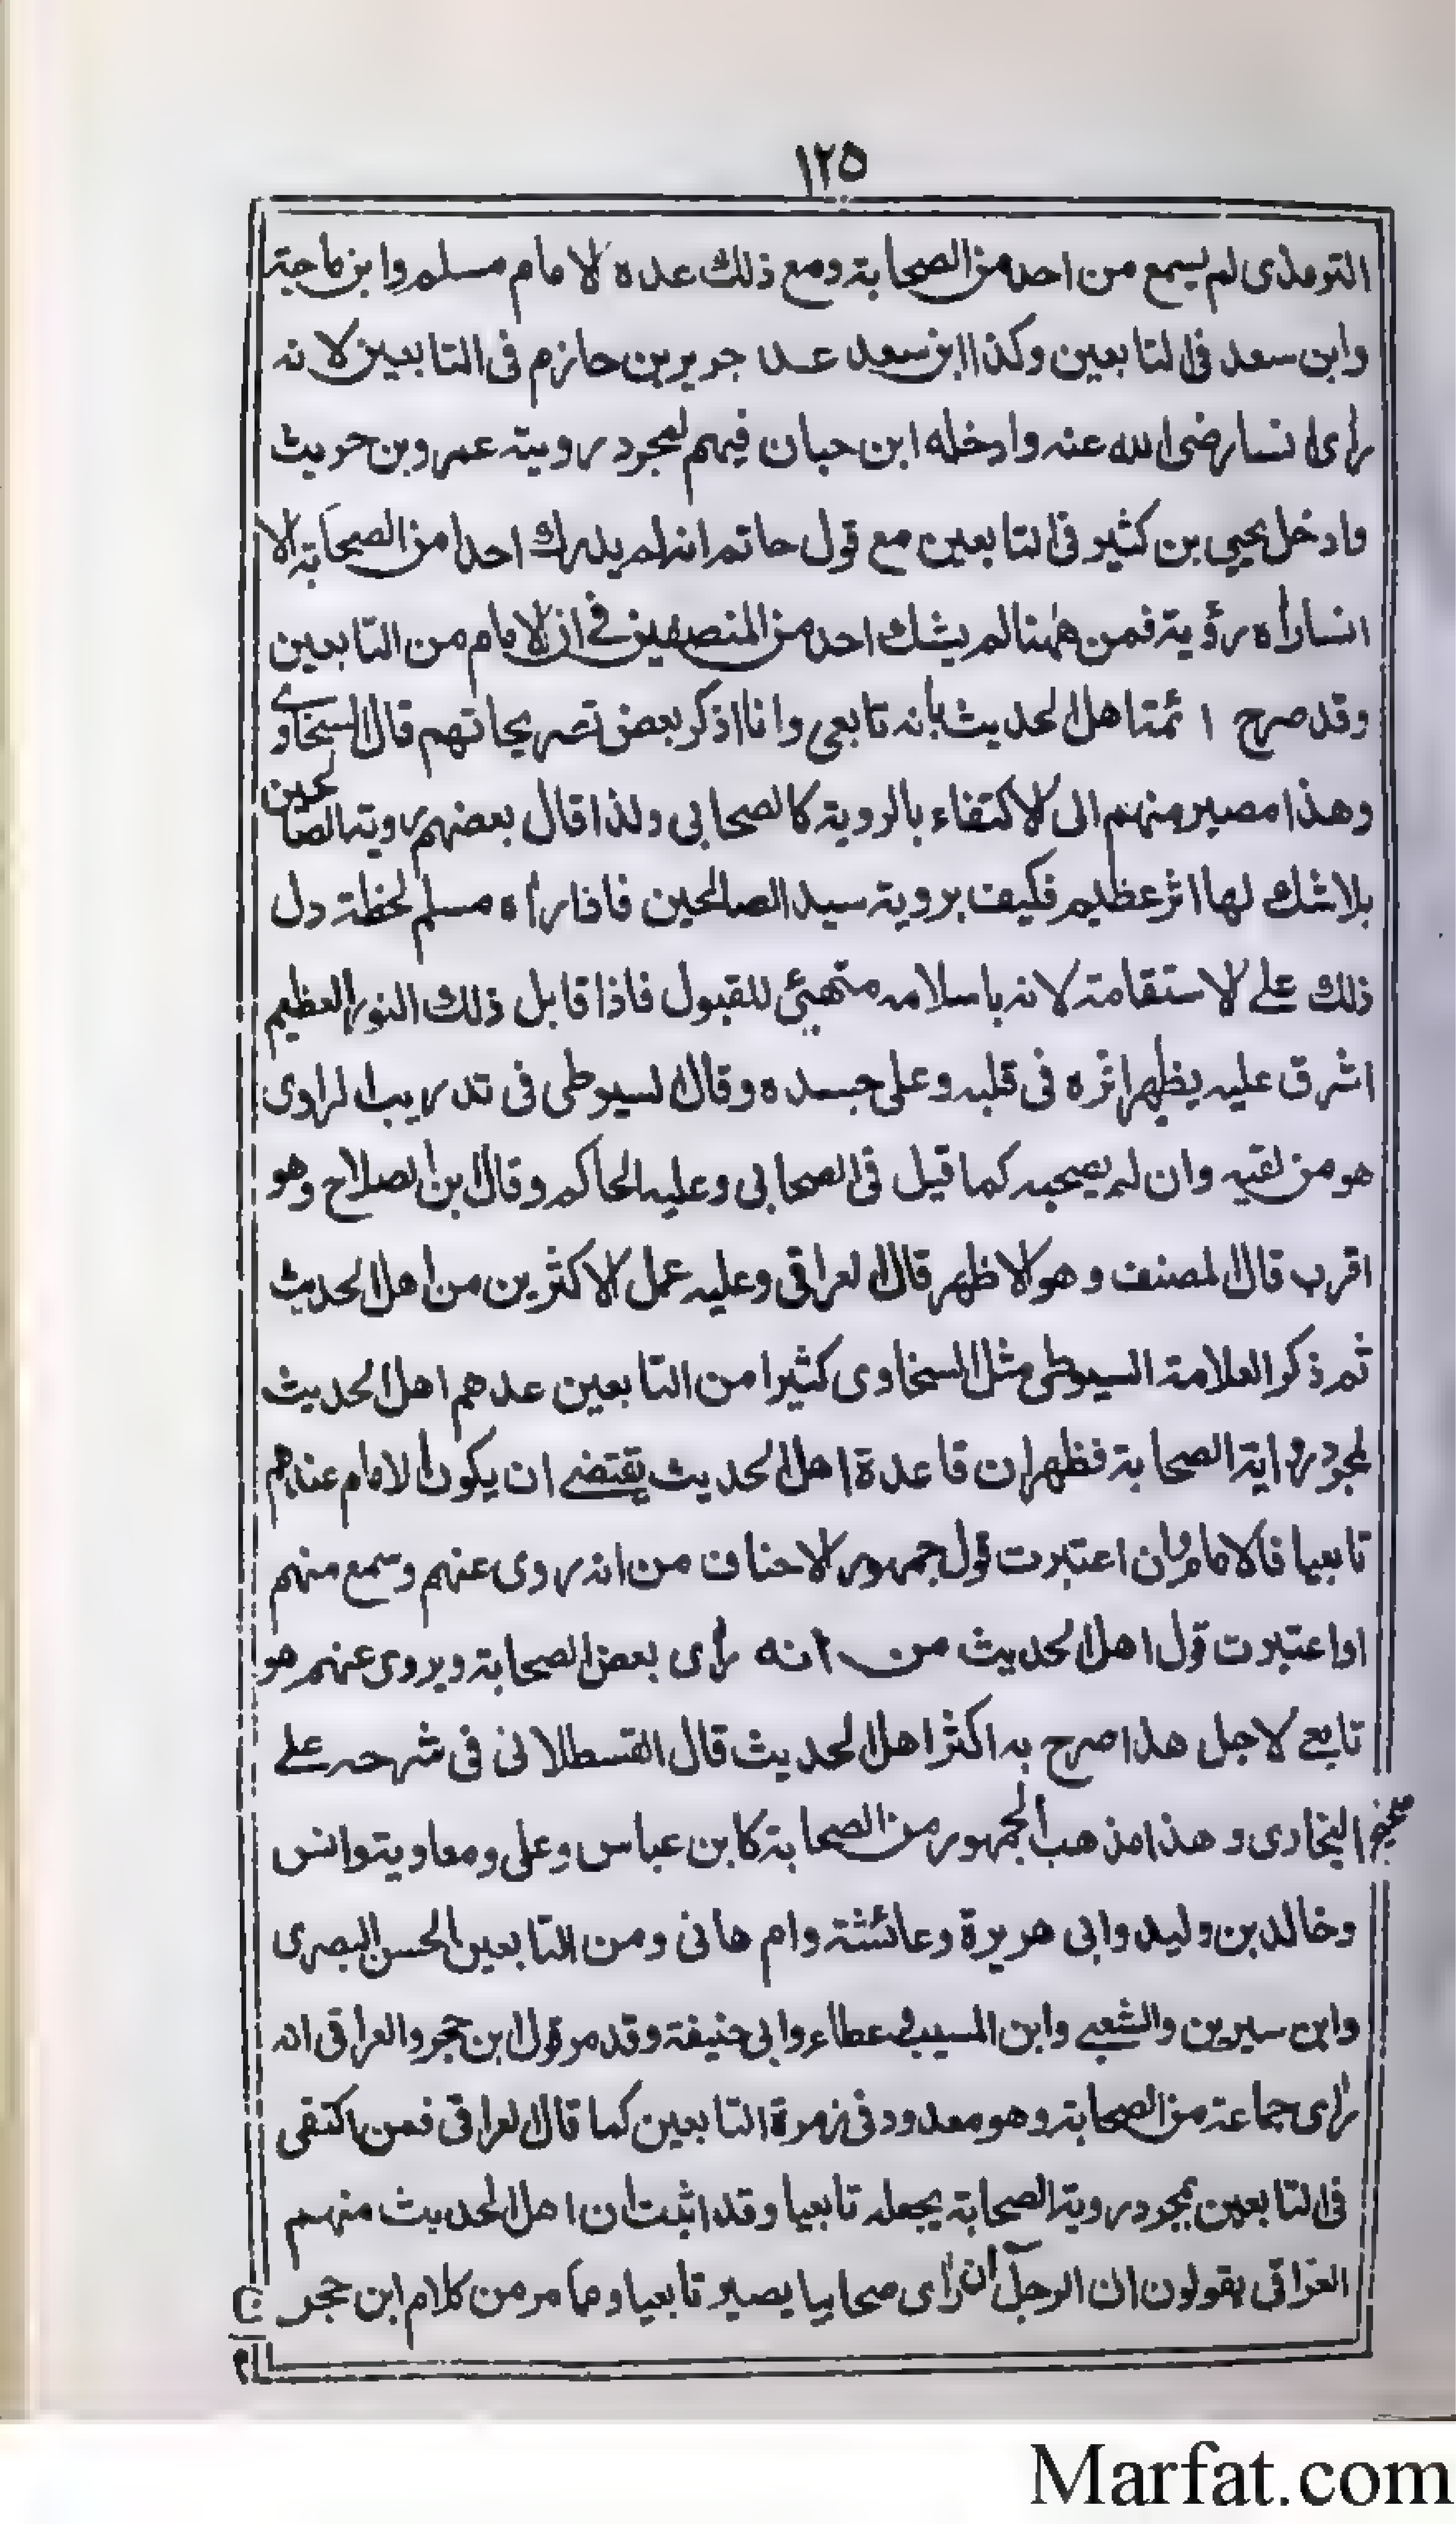 ١٢٥
الترمذى لم يسمع من احد من الصحابة ومع ذلك عده الامام مسلم وابن ماجة
وابن سعد فى التابعين وكذا ابن سعد عد جرير بن حازم فى التابعين لانه
رأى انسا رضى الله عنه وادخله ابن حبان فيهم لمجرد رويته عمرو بن حريث
وادخل يحيى بن كثير فى التابعين مع قول حاتم انه لم يدرك احدا من الصحابة الا
انسا رأه رؤية فمن ههنا لم يشك احد من المنصفين فى ان الامام من التابعين
وقد صرح ائمتا هل الحديث بانه تابعى وانا اذكر بعض تصريحاتهم قال السخاوى
وهذا مصير منهم الى الاكتفاء بالروية كالصحابى ولذا قال بعضهم روية الصالحين
بلا شك لها اثر عظيم فكيف بروية سيد الصالحين فاذا رأه مسلم لحظة دل
ذلك على الاستقامة لانه باسلامه متهيئ للقبول فاذا قابل ذلك النور العظيم
اشرق عليه يظهر اثره فى قلبه وعلى جسده وقال السيوطى فى تدريب الراوى
هو من لقيه وان لم يصحبه كما قيل فى الصحابى وعليه الحاكم وقال ابن الصلاح وهو
اقرب قال المصنف وهو الاظهر قال العراقى وعليه عمل الاكثرين من اهل الحديث
ثم ذكر العلامة السيوطى مثل السخاوى كثيرا من التابعين عدهم اهل الحديث
لمجرد رواية الصحابة فظهر ان قاعدة اهل الحديث يقتضى ان يكون الامام عندهم
تابعيا فالامام وان اعتبرت قول جمهور الاحناف من انه روى عنهم وسمع منهم
او اعتبرت قول اهل الحديث من انه رأى بعض الصحابة ويروى عنهم هو
تابعى لاجل هذا صرح به اكثر اهل الحديث قال القسطلانى فى شرحه على
صحيح البخارى وهذا مذهب الجمهور من الصحابة كابن عباس وعلى ومعاوية وانس
وخالد بن وليد وابى هريرة وعائشة وام هانى ومن التابعين الحسن البصرى
وابن سيرين والشعبى وابن المسيب وعطاء وابى حنيفة وقد مر قول ابن حجر والعراقى انه
رأى جماعة من الصحابة وهو معدود فى زمرة التابعين كما قال العراقى فمن اكتفى
فى التابعين بمجرد روية الصحابة يجعله تابعيا وقد اثبت ان اهل الحديث منهم
العراقى يقولون ان الرجل ان رأى صحابيا يصير تابعيا ومما مر من كلام ابن حجر
Marfat.com